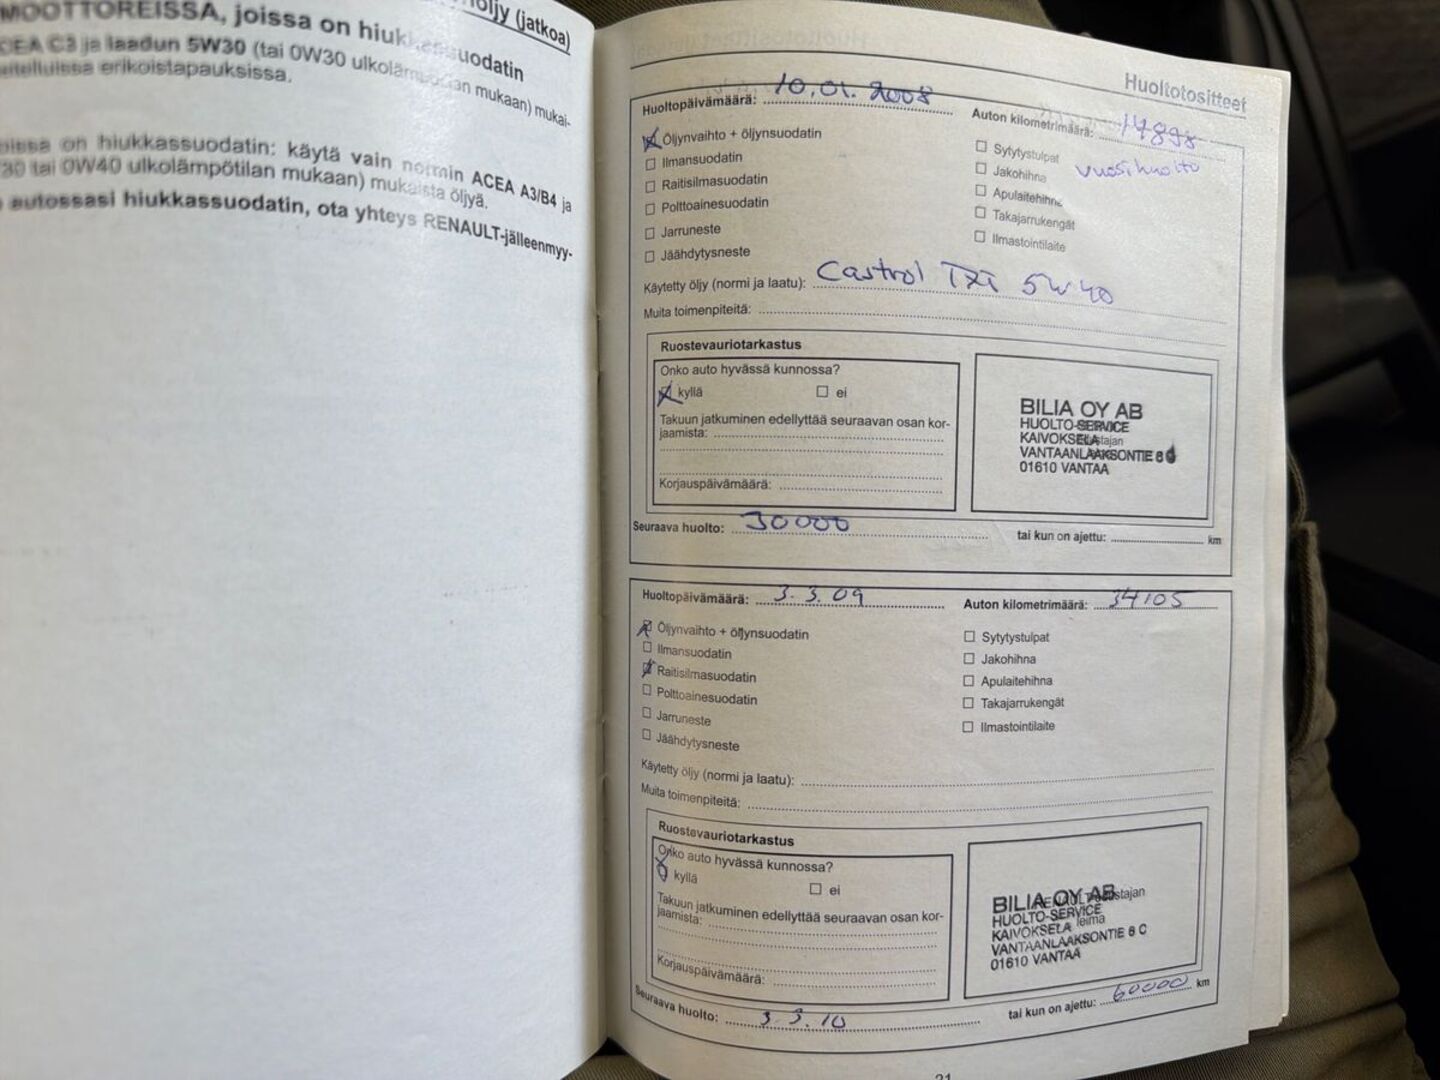 öljy (jatkoa)
MOOTTOREISSA, joissa on hiukkassuodatin
ACEA C3 ja laadun 5W30 (tai 0W30 ulkolämpötilan mukaan) mukai-
erikoistapauksissa.
joissa on hiukkassuodatin: käytä vain normin ACEA A3/B4 ja
30 tai 0W40 ulkolämpötilan mukaan) mukaista öljyä.
autossasi hiukkassuodatin, ota yhteys RENAULT-jälleenmyy-
Huoltotositteet
Huoltopäivämäärä: 10.01.2008 Auton kilometrimäärä: 14898
Öljynvaihto + öljynsuodatin Sytytystulpat vuosihuolto
Ilmansuodatin Jakohihna
Raitisilmasuodatin Apulaitehihna
Polttoainesuodatin Takajarrukengät
Jarruneste Ilmastointilaite
Jäähdytysneste
Käytetty öljy (normi ja laatu): Castrol TXT 5W40
Muita toimenpiteitä:
Ruostevauriotarkastus
Onko auto hyvässä kunnossa?
kyllä ei
Takuun jatkuminen edellyttää seuraavan osan kor-
jaamista:
Korjauspäivämäärä:
BILIA OY AB
HUOLTO-SERVICE
KAIVOKSELA
VANTAANLAAKSONTIE 6
01610 VANTAA
Seuraava huolto: 30000 tai kun on ajettu: km
Huoltopäivämäärä: 3.3.09 Auton kilometrimäärä: 34105
Öljynvaihto + öljynsuodatin Sytytystulpat
Ilmansuodatin Jakohihna
Raitisilmasuodatin Apulaitehihna
Polttoainesuodatin Takajarrukengät
Jarruneste Ilmastointilaite
Jäähdytysneste
Käytetty öljy (normi ja laatu):
Muita toimenpiteitä:
Ruostevauriotarkastus
Onko auto hyvässä kunnossa?
kyllä ei
Takuun jatkuminen edellyttää seuraavan osan kor-
jaamista:
Korjauspäivämäärä:
BILIA OY AB
HUOLTO-SERVICE
KAIVOKSELA leima
VANTAANLAAKSONTIE 6 C
01610 VANTAA
Seuraava huolto: 3.3.10 tai kun on ajettu: 60000 km
21